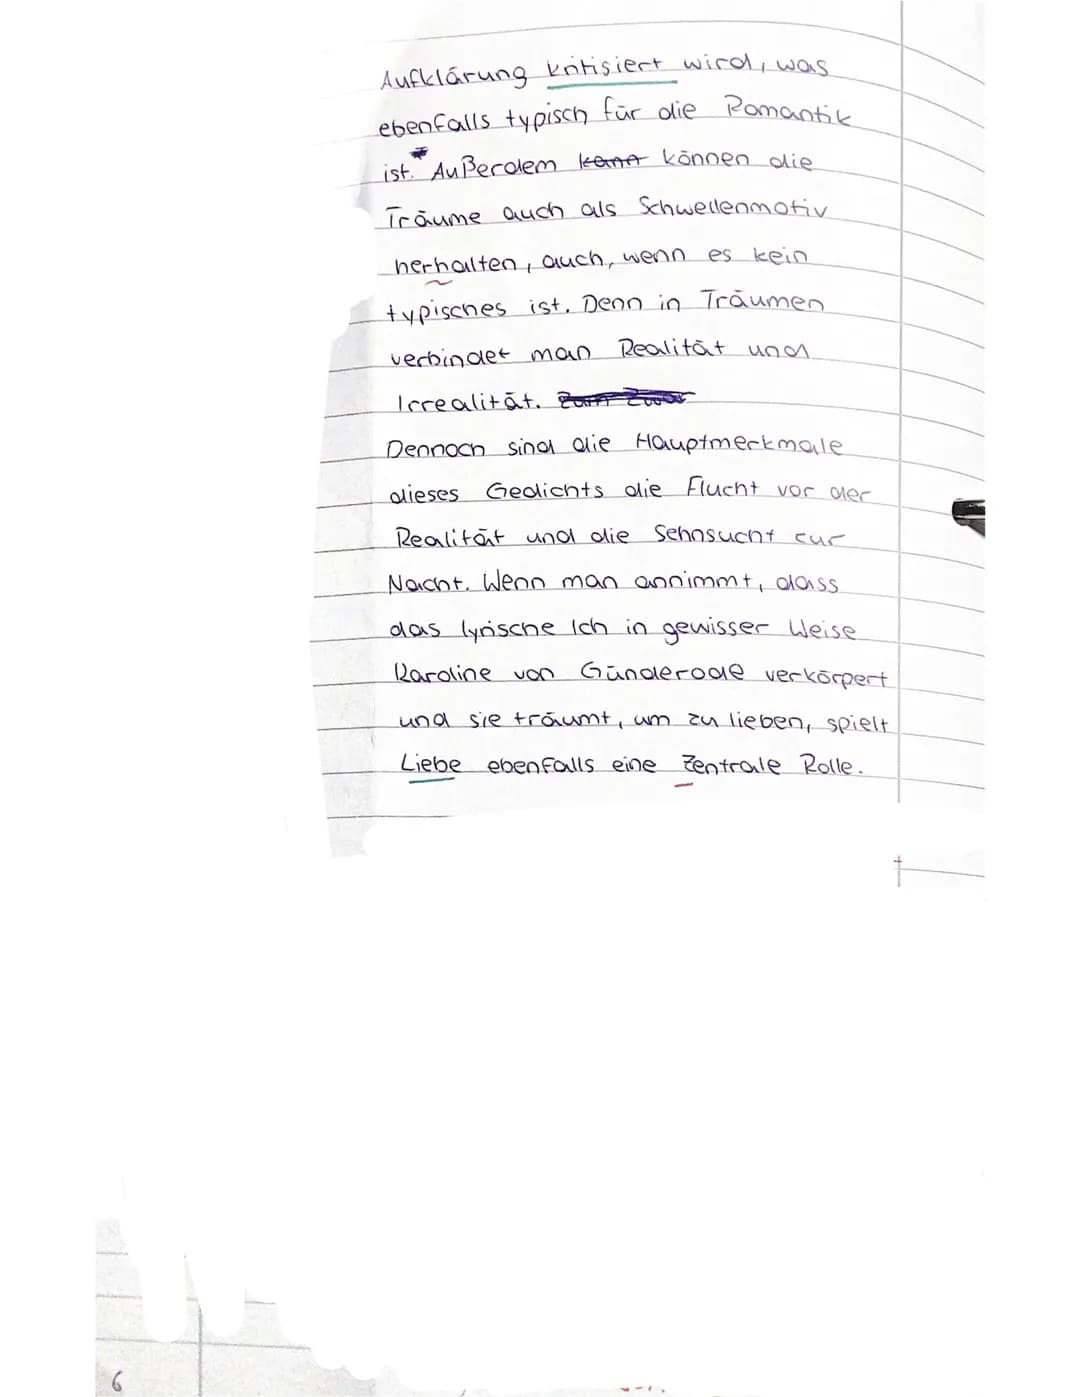 Aufklärung kritisiert wird, was
ebenfalls typisch für die Romantik
ist.* Außerdem kann können die
Träume auch als Schwellenmotiv
herhalten, auch, wenn es kein
typisches ist. Denn in Träumen
verbindet man Realität und
Irrealität. Zum Zwar
Dennoch sind die Hauptmerkmale
dieses Gedichts die Flucht vor der
Realität und die Sehnsucht zur
Nacht. Wenn man annimmt, dass
das lyrische Ich in gewisser Weise
Karoline von Günderode verkörpert
und sie träumt, um zu lieben, spielt
Liebe ebenfalls eine Zentrale Rolle.
6